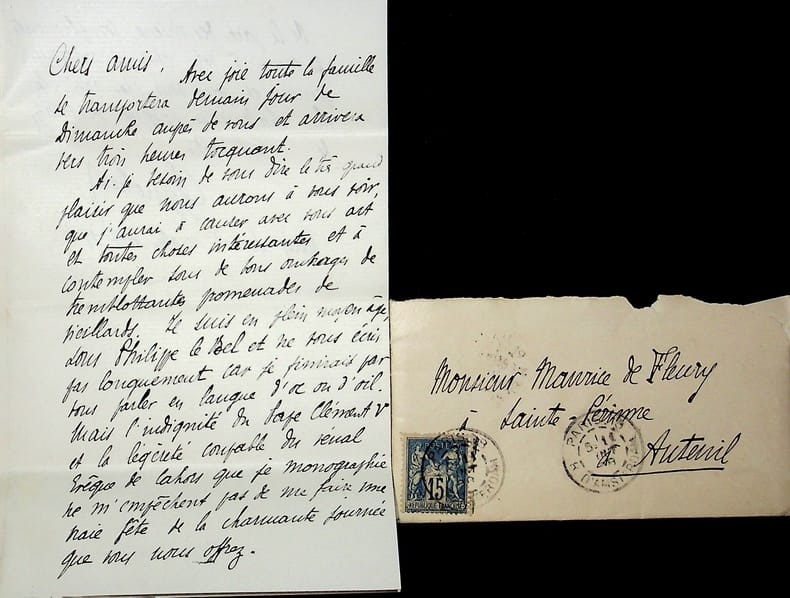 Chers amis. Avec joie toute la famille
se transportera demain jour de
Dimanche auprès de vous et arrivera
vers trois heures toquant.
Ai-je besoin de vous dire le très grand
plaisir que nous aurons à vous voir,
que j'aurai à causer avec vous art
et toutes choses intéressantes et à
contempler sous de bons ombrages de
tremblottantes promenades de
vieillards. Je suis en plein moyen âge,
sous Philippe le Bel et ne vous écris
pas longuement car je finirais par
vous parler en langue d'oc ou d'oïl.
Mais l'indignité du Pape Clément V
et la légèreté coupable du vénal
Évêque de Cahors que je monographie
ne m'empêchent pas de me faire une
vraie fête de la charmante journée
que vous nous offrez.
Monsieur Maurice de Fleury
à Sainte Périnne
Auteuil
15
REPUBLIQUE FRANÇAISE
PARIS
R. D'AMSTERDAM